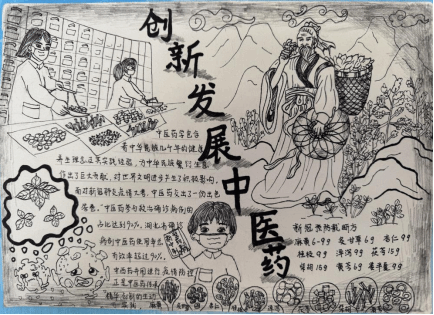 创新发展中医药
中医药学包含
着中华民族几千年的健康
养生理念及其实践经验，为中华民族繁衍生息
作出了巨大贡献，对世界文明进步产生了积极影响。
面对新冠肺炎疫情大考，中医药交出了一份出色
答卷。"中医药参与救治确诊病例的
占比达到92%，湖北省确诊
病例中医药使用率和
有效率超过90%，
中西药并用
正是中医药传承
精华、创新的生动
新冠
麻黄6-9g 炙甘草6g 杏仁9g
桂枝9g 泽泻9g 茯苓15g
柴胡15g 黄芩6g 姜半夏9g